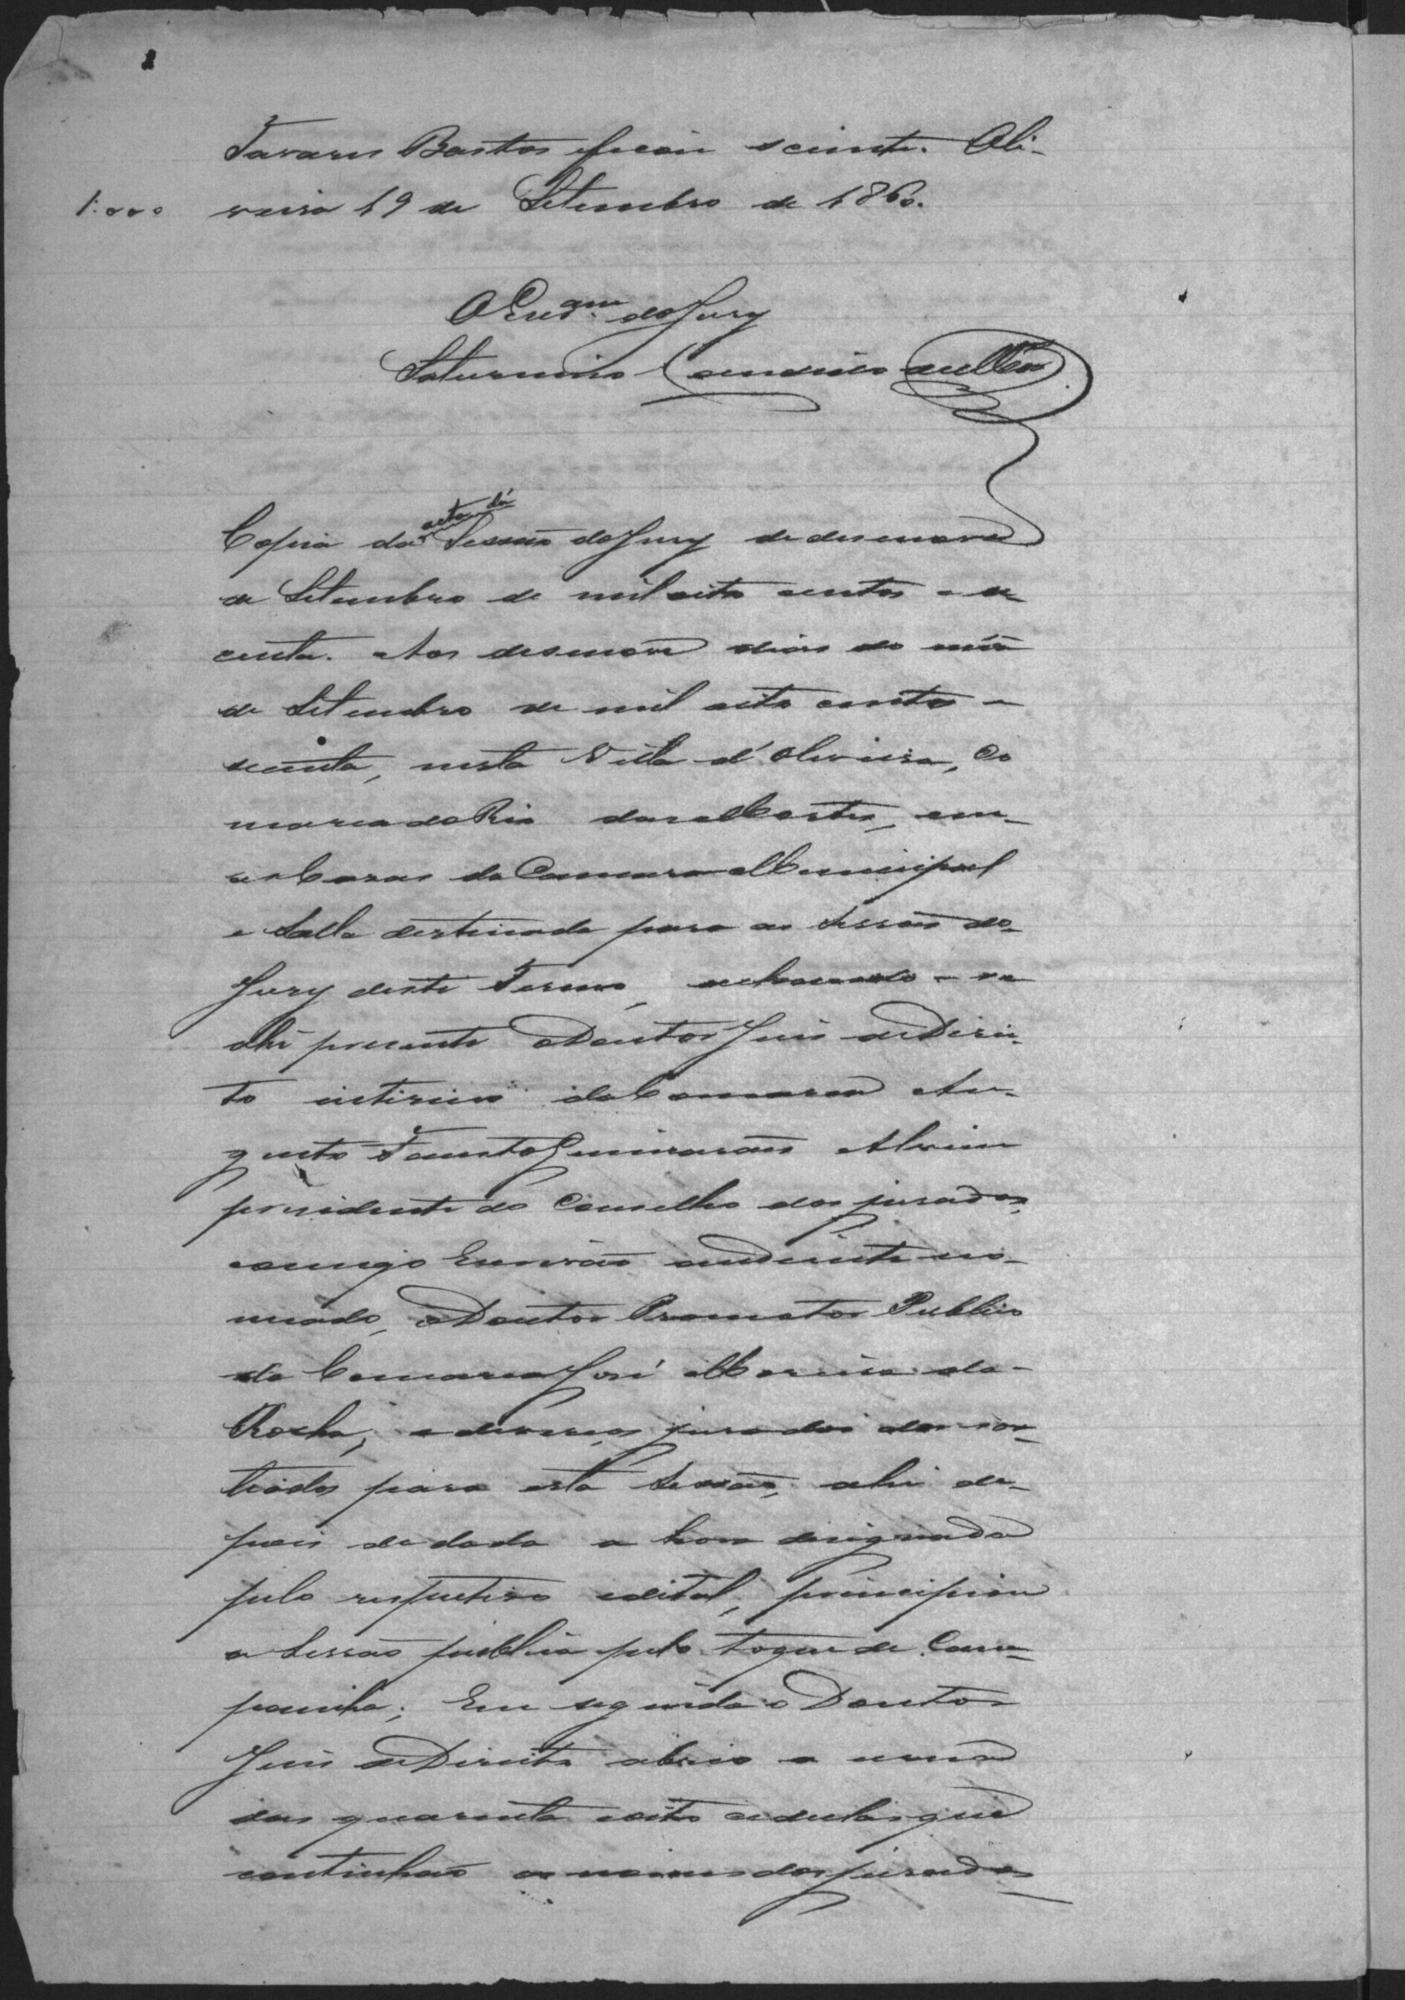 Tavares Bastos ficou sciente. Oli-
1:000 veira 19 de Setembro de 1860.
O Escr.am do Jury
Saturnino Candido
Copia da acta da Sessão do Jury de desenove
de Setembro de mil oito centos e se-
centa. Aos desenove dias do mês
de Setembro de mil oito centos e
secenta, nesta Villa d'Oliveira, Co
marca do Rio das Mortes, em
as Casas da Camara Municipal
e Salla destinada para as Sessões do
Jury deste Termo, achando-se
ahi presente o Doutor Juis de Direi-
to interino da Comarca Au-
gusto Fausto Guimarães Alvim
presidente do Conselho dos jurados,
comigo Escrivão audiente no-
meado, o Doutor Promotor Publico
da Comarca José Moreira da
Rocha; e diversos jurados dos sor-
teados para esta Sessão, ahi de-
pois de dada a hora designada
pelo respectivo edital, principiou
a Sessão publica pelo toque de Cam-
painha; Em seguida o Doutor
Juis de Direito abrio a urna
das quarenta e oito cedulas que
continhão os nomes dos jurados